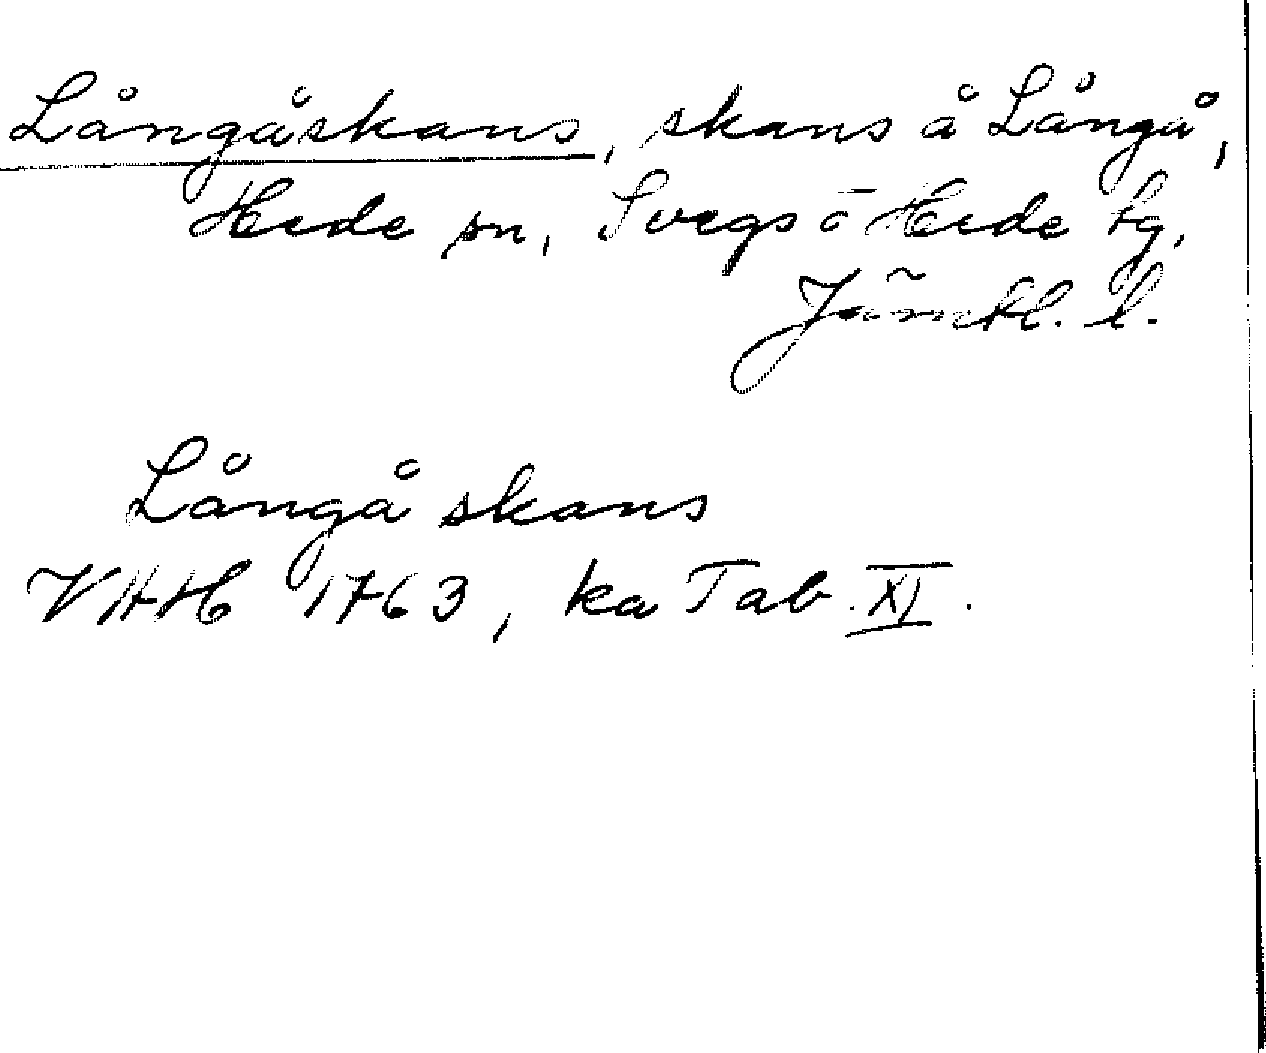 Långåskans, skans å Långå,
Hede sn, Svegs o Hede tg,
Jämtl. l.
Långå skans
VHAH 1763, ka Tab. XI.